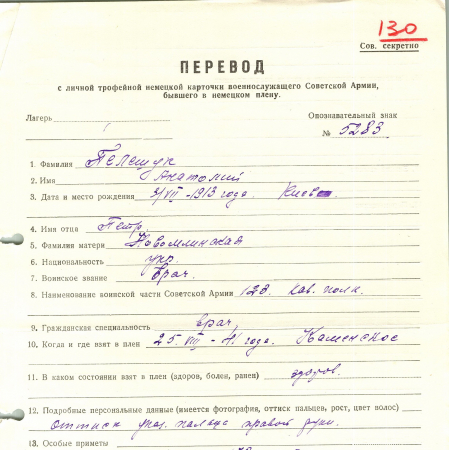 130
Сов. секретно
ПЕРЕВОД
с личной трофейной немецкой карточки военнослужащего Советской Армии,
бывшего в немецком плену.
Лагерь
Опознавательный знак
№ 5283
1. Фамилия Пелещук
2. Имя Анатолий
3. Дата и место рождения 3/VII-1913 года. Киев
4. Имя отца Петр.
5. Фамилия матери Новомлинская
6. Национальность укр.
7. Воинское звание Врач.
8. Наименование воинской части Советской Армии 128. кав. полк.
9. Гражданская специальность врач,
10. Когда и где взят в плен 25. VIII-41 года. Каменское
11. В каком состоянии взят в плен (здоров, болен, ранен) здоров.
12. Подробные персональные данные (имеется фотография, оттиск пальцев, рост, цвет волос)
оттиск указ. пальца правой руки.
13. Особые приметы